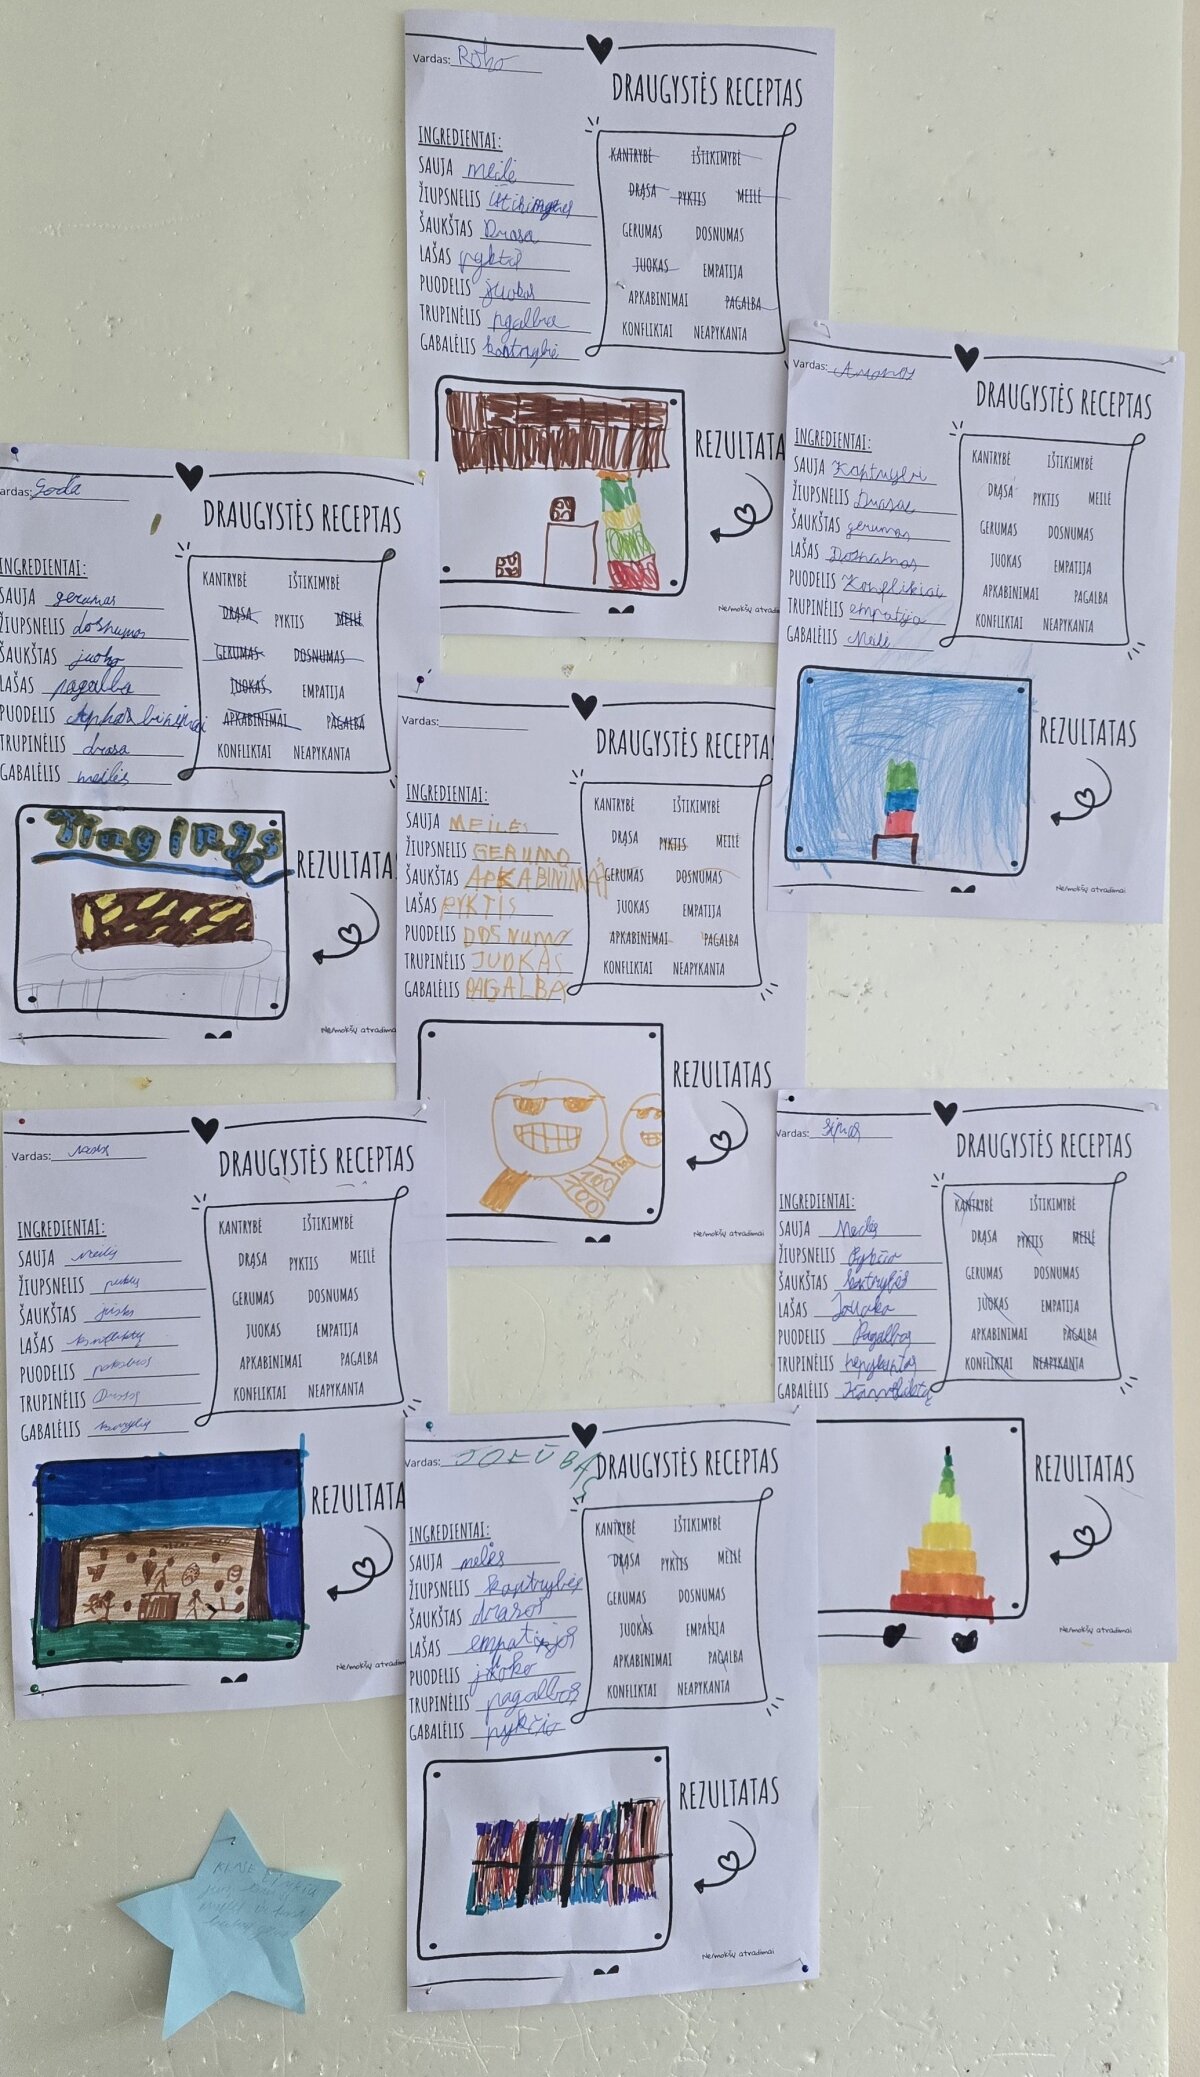 Vardas: Roko
DRAUGYSTĖS RECEPTAS
INGREDIENTAI:
SAUJA meilė
ŽIUPSNELIS
ŠAUKŠTAS Drąsa
LAŠAS pyktis
PUODELIS juokas
TRUPINĖLIS pgalba
GABALĖLIS kantrybė
KANTRYBĖ IŠTIKIMYBĖ
DRĄSA PYKTIS MEILĖ
GERUMAS DOSNUMAS
JUOKAS EMPATIJA
APKABINIMAI PAGALBA
KONFLIKTAI NEAPYKANTA
REZULTATA
Ne/mokšų atrad
Vardas:
DRAUGYSTĖS RECEPTAS
INGREDIENTAI:
SAUJA
ŽIUPSNELIS Drąsa
ŠAUKŠTAS gerumas
LAŠAS Dosnumas
PUODELIS
TRUPINĖLIS empatija
GABALĖLIS Meilė
KANTRYBĖ IŠTIKIMYBĖ
DRĄSA PYKTIS MEILĖ
GERUMAS DOSNUMAS
JUOKAS EMPATIJA
APKABINIMAI PAGALBA
KONFLIKTAI NEAPYKANTA
REZULTATAS
Ne/mokšų atradimai
ardas: Goda
DRAUGYSTĖS RECEPTAS
INGREDIENTAI:
SAUJA gerumas
ŽIUPSNELIS dosnumos
ŠAUKŠTAS juoko
LAŠAS pagalba
PUODELIS
TRUPINĖLIS drasa
GABALĖLIS meilės
KANTRYBĖ IŠTIKIMYBĖ
DRĄSA PYKTIS MEILĖ
GERUMAS DOSNUMAS
JUOKAS EMPATIJA
APKABINIMAI PAGALBA
KONFLIKTAI NEAPYKANTA
Tinginys
REZULTATA
Ne/mokšų atradima
Vardas:
DRAUGYSTĖS RECEPTAS
INGREDIENTAI:
SAUJA MEILĖS
ŽIUPSNELIS GERUMO
ŠAUKŠTAS APKABINIMAI
LAŠAS PYKTIS
PUODELIS DOSNUMO
TRUPINĖLIS JUOKAS
GABALĖLIS PAGALBA
KANTRYBĖ IŠTIKIMYBĖ
DRĄSA PYKTIS MEILĖ
GERUMAS DOSNUMAS
JUOKAS EMPATIJA
APKABINIMAI PAGALBA
KONFLIKTAI NEAPYKANTA
100
100
REZULTATAS
Ne/mokšų atradimai
Vardas:
DRAUGYSTĖS RECEPTAS
INGREDIENTAI:
SAUJA meilės
ŽIUPSNELIS
ŠAUKŠTAS
LAŠAS
PUODELIS
TRUPINĖLIS
GABALĖLIS
KANTRYBĖ IŠTIKIMYBĖ
DRĄSA PYKTIS MEILĖ
GERUMAS DOSNUMAS
JUOKAS EMPATIJA
APKABINIMAI PAGALBA
KONFLIKTAI NEAPYKANTA
REZULTATA
Ne/mokšų atradima
Vardas: Simas
DRAUGYSTĖS RECEPTAS
INGREDIENTAI:
SAUJA Meilės
ŽIUPSNELIS Pykčio
ŠAUKŠTAS kantrybės
LAŠAS
PUODELIS Pagalbos
TRUPINĖLIS
GABALĖLIS
KANTRYBĖ IŠTIKIMYBĖ
DRĄSA PYKTIS MEILĖ
GERUMAS DOSNUMAS
JUOKAS EMPATIJA
APKABINIMAI PAGALBA
KONFLIKTAI NEAPYKANTA
REZULTATAS
Ne/mokšų atradimai
Vardas: JOKŪBAS
DRAUGYSTĖS RECEPTAS
INGREDIENTAI:
SAUJA
ŽIUPSNELIS kantrybės
ŠAUKŠTAS drąsos
LAŠAS empatijos
PUODELIS
TRUPINĖLIS pagalbos
GABALĖLIS pykčio
KANTRYBĖ IŠTIKIMYBĖ
DRĄSA PYKTIS MEILĖ
GERUMAS DOSNUMAS
JUOKAS EMPATIJA
APKABINIMAI PAGALBA
KONFLIKTAI NEAPYKANTA
REZULTATAS
Ne/mokšų atradimai